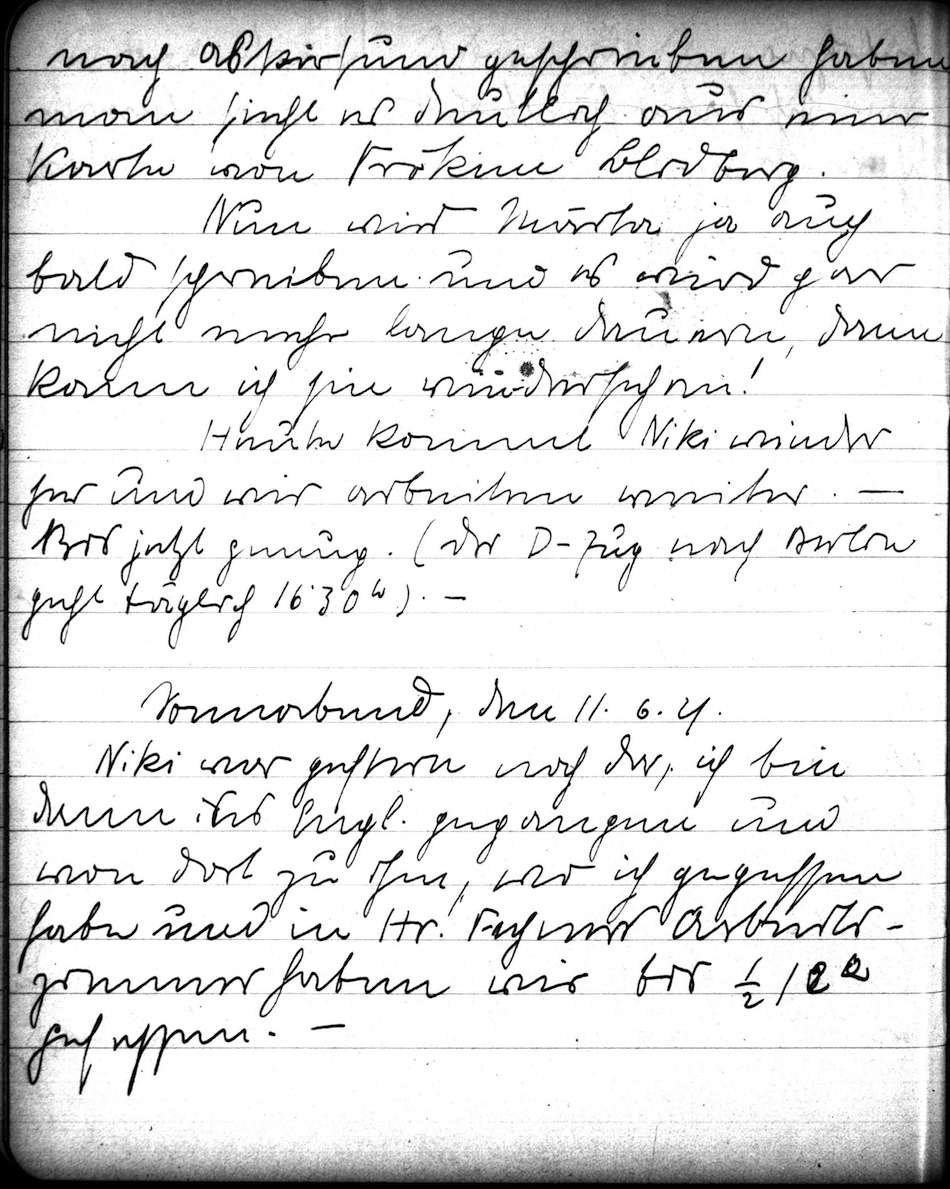 nach Askersund geschrieben haben
man sieht es deutlich aus einer
Karte von Fröken Blidberg.
Nun wird Märta ja auch
bald schreiben und es wird gar
nicht mehr lange dauern, dann
kann ich sie wiedersehen!
Heute kommt Niki wieder
her und wir arbeiten weiter. —
Bis jetzt genug. (Der D-Zug nach Berlin
geht täglich 16 30 h). —
Sonnabend, den 11. 6. 21.
Niki war gestern noch da, ich bin
dann ins Engl. gegangen und
von dort zu ihm, wo ich gegessen
habe und in Hr. Arbeits-
zimmer haben wir bis ½ 12
gesessen. —